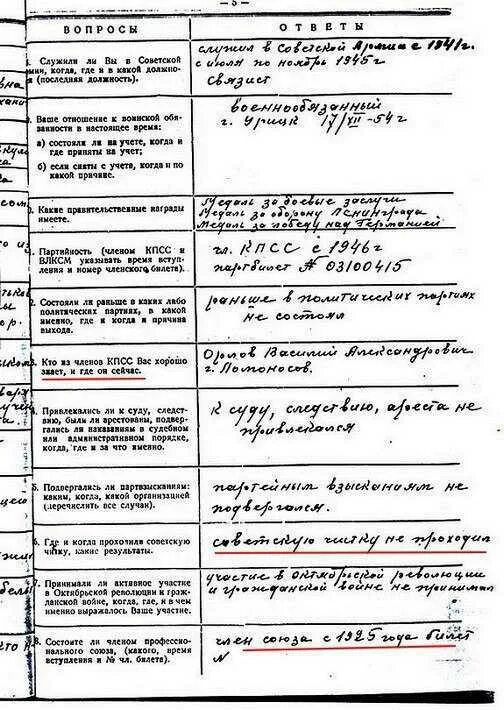 — 3 —
ВОПРОСЫ
ОТВЕТЫ
Служили ли Вы в Советской
Армии, когда, где и в какой должно-
(последняя должность).
служил в Советской Армии с 1941г.
с июля по ноябрь 1945г
связист
Ваше отношение к воинской обя-
занности в настоящее время:
а) состоите ли на учете, когда и
где приняты на учет;
б) если сняты с учета, когда и по
какой причине.
военнообязанный
г. Урицк 17/XII-54г
Какие правительственные награды
имеете.
Медаль за боевые заслуги
Медаль за оборону Ленинграда
Медаль за победу над Германией
Партийность (членом КПСС и
ВЛКСМ указывать время вступ-
ления и номер членского билета).
чл. КПСС с 1946г
партбилет № 03100415
Состояли ли раньше в каких либо
политических партиях, в какой
именно, где и когда и причина
выхода.
раньше в политических партиях
не состоял
Кто из членов КПСС Вас хорошо
знает, и где он сейчас.
Орлов Василий Александрович
г. Ломоносов.
Привлекались ли к суду, следст-
вию, были ли арестованы, подвер-
гались ли наказаниям в судебном
или административном порядке,
когда, где и за что именно.
к суду, следствию, ареста не
привлекался
5. Подвергались ли партвзысканиям:
каким, когда, какой организацией
(перечислить все случаи).
партейным взысканиям не
подвергался.
6. Где и когда проходили советскую
чистку, какие результаты.
советскую чистку не проходил
7. Принимали ли активное участие
в Октябрьской революции и граж-
данской войне, когда, где, и в чем
именно выражалось Ваше участие.
участие в Октябрьской революции
и гражданской войне не принимал
8. Состоите ли членом профессио-
нального союза, (какого, время
вступления и № чл. билета).
член союза с 1925 года билет
N